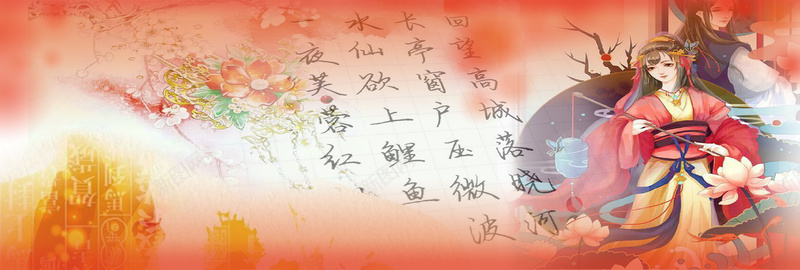 回望高城落晓河
长亭窗户压微波
水仙欲上鲤鱼
一夜芙蓉红